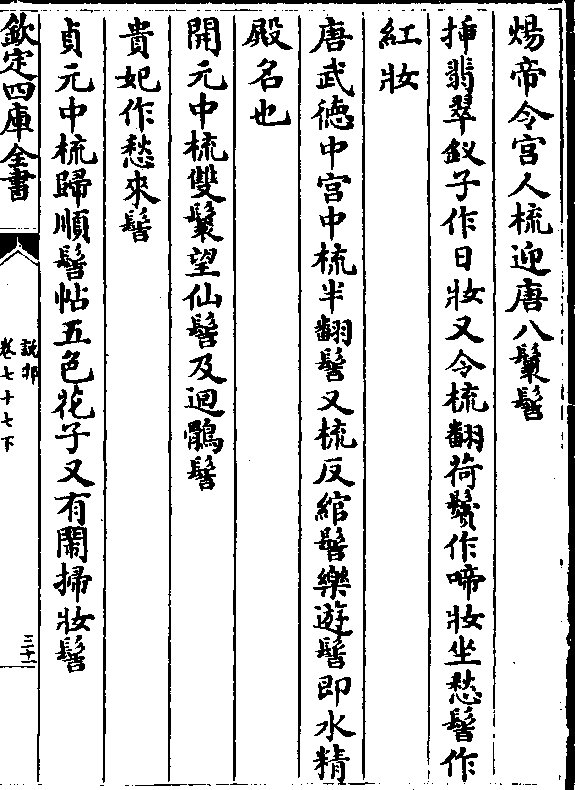 煬帝令宫人梳迎唐八鬟髻
揷翡翠釵子作日妝又令梳翻荷鬢作啼妝坐愁髻作
紅妝
唐武徳中宫中梳半翻髻又梳反綰髻樂遊髻即水精
殿名也
開元中梳雙鬟望仙髻及迴鶻髻
貴妃作愁來髻
貞元中梳歸順髻帖五色花子又有鬧掃妝髻
欽定四庫全書
說郛
卷七十七下
三十二